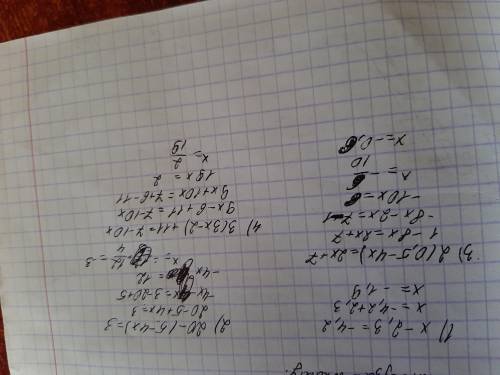 1) x - 2,3 = -4,2
x = -4,2+2,3
x = -1,9
3) 2(0,5-4x)=2x+7
1-8x=2x+7
-8x-2x=7-1
-10x=6
x=-6/10
x=-0,6
2) 20-(5-4x)=3
20-5+4x=3
4x=3-20+5
-4x=12
4) 3(3x-2)+11=7-10x
9x-6+11=7-10x
9x+10x=7+6-11
19x=2
x=2/19